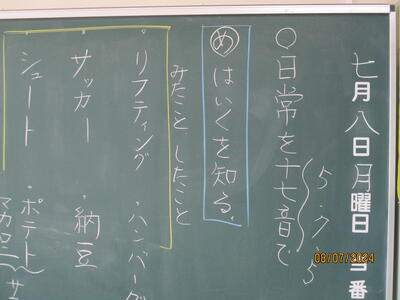 七月八日月曜日 当番
○日常を十七音で
5・7・5
め はいくを知る。
みたこと したこと
・リフティング
・ハンバーグ
サッカー
・納豆
シュート
・ポテト
マカロニ
サ
08/07/2024